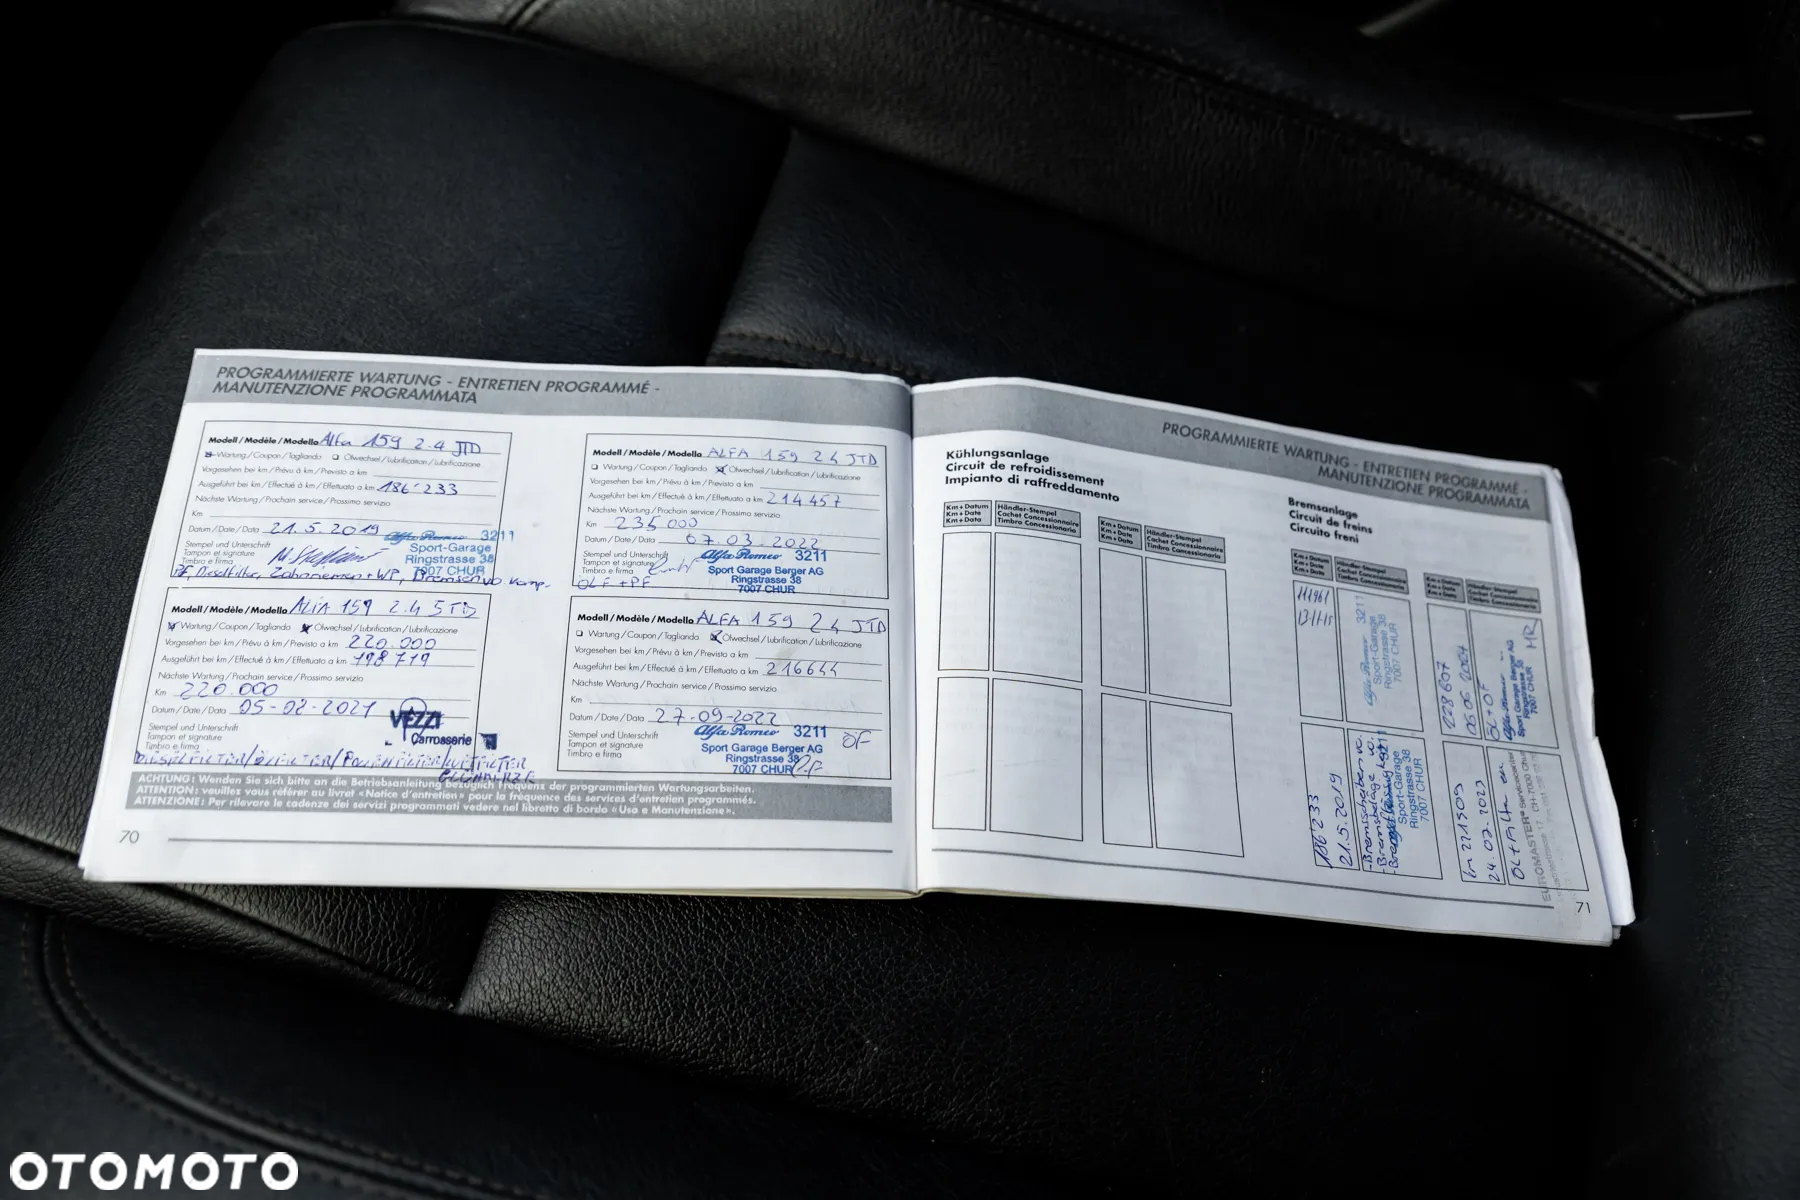 PROGRAMMIERTE WARTUNG - ENTRETIEN PROGRAMMÉ -
MANUTENZIONE PROGRAMMATA
Modell / Modèle / Modello Alfa 159 2.4 JTD
Wartung / Coupon / Tagliando Ölwechsel / Lubrification / Lubrificazione
Vorgesehen bei km / Prévu à km / Previsto a km
Ausgeführt bei km / Effectué à km / Effettuato a km 186'233
Nächste Wartung / Prochain service / Prossimo servizio
Km
Datum / Date / Data 21.5.2019
Stempel und Unterschrift
Tampon et signature
Timbro e firma
Alfa Romeo 3211
Sport-Garage
Ringstrasse 38
7007 CHUR
PF, Dieselfilter, Zahnriemen + WP, Bremsen vo komp.
Modell / Modèle / Modello ALFA 159 2.4 JTD
Wartung / Coupon / Tagliando Ölwechsel / Lubrification / Lubrificazione
Vorgesehen bei km / Prévu à km / Previsto a km 220.000
Ausgeführt bei km / Effectué à km / Effettuato a km 198719
Nächste Wartung / Prochain service / Prossimo servizio
Km 220.000
Datum / Date / Data 05-02-2021
Stempel und Unterschrift
Tampon et signature
Timbro e firma
VEZZI
Carrosserie
DIESELFILTER/ÖLFILTER/POLLENFILTER/LUFTFILTER
Modell / Modèle / Modello ALFA 159 2.4 JTD
Wartung / Coupon / Tagliando Ölwechsel / Lubrification / Lubrificazione
Vorgesehen bei km / Prévu à km / Previsto a km
Ausgeführt bei km / Effectué à km / Effettuato a km 214457
Nächste Wartung / Prochain service / Prossimo servizio
Km 235000
Datum / Date / Data 07.03.2022
Stempel und Unterschrift
Tampon et signature
Timbro e firma
Alfa Romeo 3211
Sport Garage Berger AG
Ringstrasse 38
7007 CHUR
ÖLF + PF
Modell / Modèle / Modello ALFA 159 2.4 JTD
Wartung / Coupon / Tagliando Ölwechsel / Lubrification / Lubrificazione
Vorgesehen bei km / Prévu à km / Previsto a km
Ausgeführt bei km / Effectué à km / Effettuato a km 216644
Nächste Wartung / Prochain service / Prossimo servizio
Km
Datum / Date / Data 27-09-2022
Stempel und Unterschrift
Tampon et signature
Timbro e firma
Alfa Romeo 3211
Sport Garage Berger AG
Ringstrasse 38
7007 CHUR
ÖF
ACHTUNG: Wenden Sie sich bitte an die Betriebsanleitung bezüglich Frequenz der programmierten Wartungsarbeiten.
ATTENTION: veuillez vous référer au livret «Notice d'entretien» pour la fréquence des services d'entretien programmés.
ATTENZIONE: Per rilevare le cadenze dei servizi programmati vedere nel libretto di bordo «Uso e Manutenzione».
70
PROGRAMMIERTE WARTUNG - ENTRETIEN PROGRAMMÉ -
MANUTENZIONE PROGRAMMATA
Kühlungsanlage
Circuit de refroidissement
Impianto di raffreddamento
Km + Datum
Km + Date
Km + Data
Händler-Stempel
Cachet Concessionnaire
Timbro Concessionario
Km + Datum
Km + Date
Km + Data
Händler-Stempel
Cachet Concessionnaire
Timbro Concessionario
Bremsanlage
Circuit de freins
Circuito freni
Km + Datum
Km + Date
Km + Data
Händler-Stempel
Cachet Concessionnaire
Timbro Concessionario
Km + Datum
Km + Date
Km + Data
Händler-Stempel
Cachet Concessionnaire
Timbro Concessionario
111961
13-11-15
Alfa Romeo 3211
Sport-Garage
Ringstrasse 38
7007 CHUR
228607
06.06.2024
ÖL+ÖF
Sport Garage Berger AG
Ringstrasse 38
7007 CHUR
186'233
21.5.2019
- Bremsscheiben vo.
- Bremsbeläge vo.
Sport-Garage
Ringstrasse 38
7007 CHUR
km 221509
24.07.2023
EUROMASTER
71
OTOMOTO